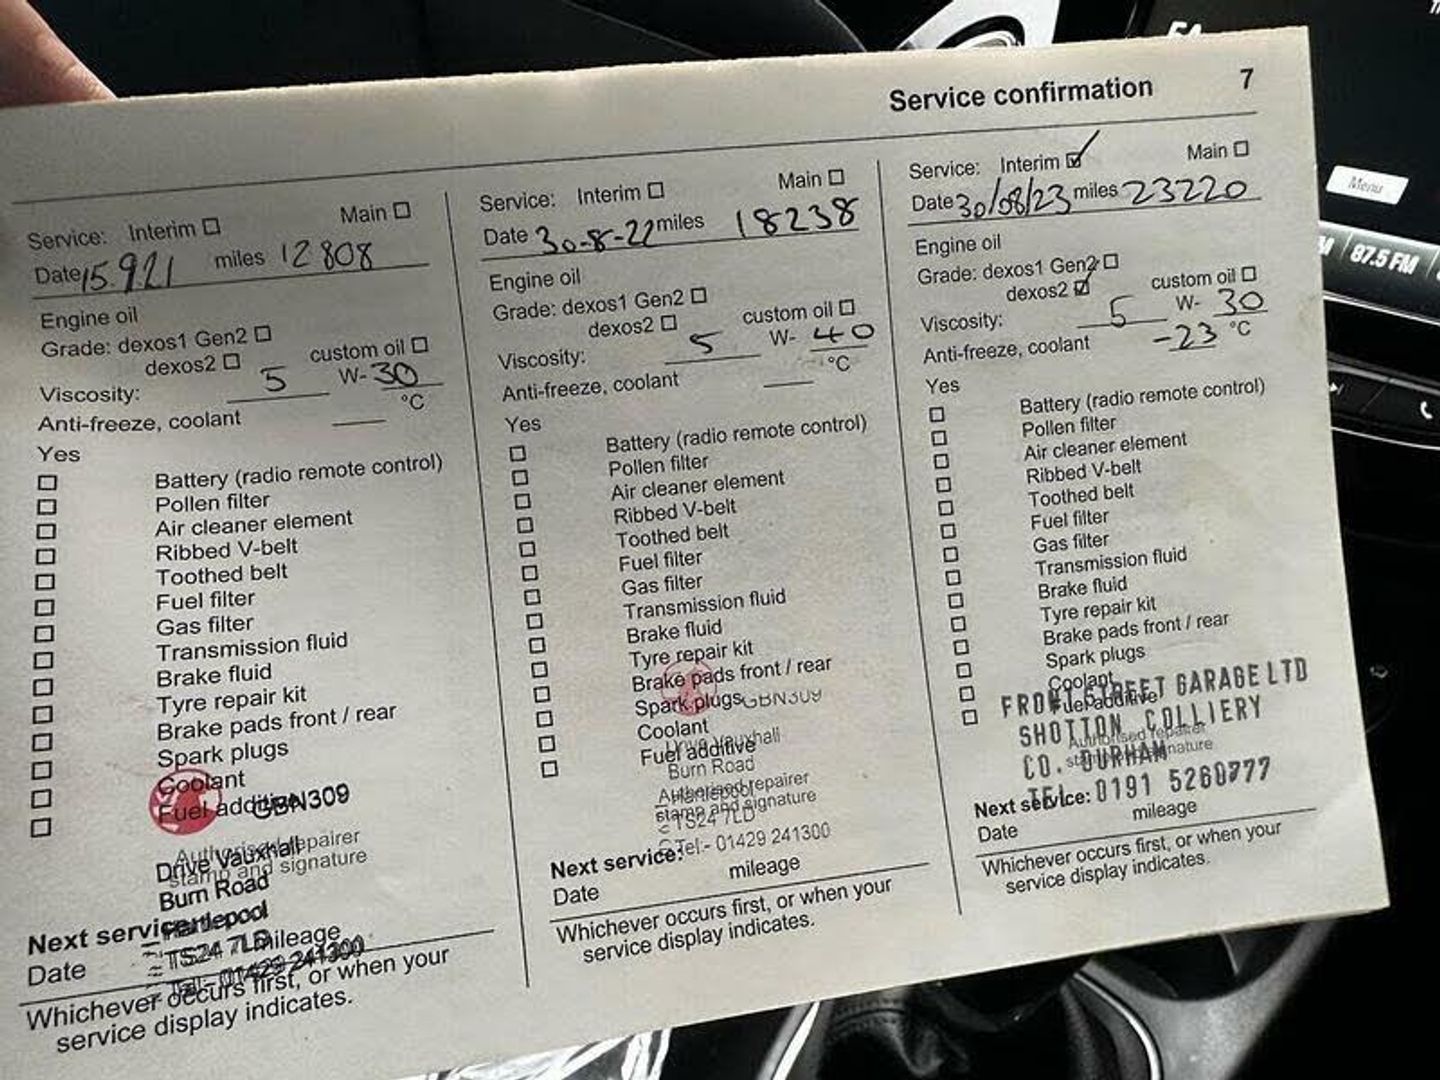 Service confirmation 7
Service: Interim Main
Date 15.9.21 miles 12808
Engine oil
Grade: dexos1 Gen2
dexos2 custom oil
Viscosity: 5 W-30
Anti-freeze, coolant °C
Yes
Battery (radio remote control)
Pollen filter
Air cleaner element
Ribbed V-belt
Toothed belt
Fuel filter
Gas filter
Transmission fluid
Brake fluid
Tyre repair kit
Brake pads front / rear
Spark plugs
Coolant
Fuel additive
GBN309
Authorised repairer
stamp and signature
Drive Vauxhall
Burn Road
Hartlepool
TS24 7LD
Tel:- 01429 241300
Next service:
Date mileage
Whichever occurs first, or when your
service display indicates.
Service: Interim Main
Date 30-8-22 miles 18238
Engine oil
Grade: dexos1 Gen2
dexos2 custom oil
Viscosity: 5 W- 40
Anti-freeze, coolant °C
Yes
Battery (radio remote control)
Pollen filter
Air cleaner element
Ribbed V-belt
Toothed belt
Fuel filter
Gas filter
Transmission fluid
Brake fluid
Tyre repair kit
Brake pads front / rear
Spark plugs
GBN309
Coolant
Fuel additive
Drive Vauxhall
Burn Road
Hartlepool
TS24 7LD
Tel:- 01429 241300
Authorised repairer
stamp and signature
Next service:
Date mileage
Whichever occurs first, or when your
service display indicates.
Service: Interim Main
Date 30/08/23 miles 23220
Engine oil
Grade: dexos1 Gen2
dexos2 custom oil
Viscosity: 5 W- 30
Anti-freeze, coolant -23 °C
Yes
Battery (radio remote control)
Pollen filter
Air cleaner element
Ribbed V-belt
Toothed belt
Fuel filter
Gas filter
Transmission fluid
Brake fluid
Tyre repair kit
Brake pads front / rear
Spark plugs
Coolant
Fuel additive
FRONT STREET GARAGE LTD
SHOTTON COLLIERY
CO. DURHAM
TEL: 0191 5260777
Authorised repairer
stamp and signature
Next service:
Date mileage
Whichever occurs first, or when your
service display indicates.
Menu
87.5 FM